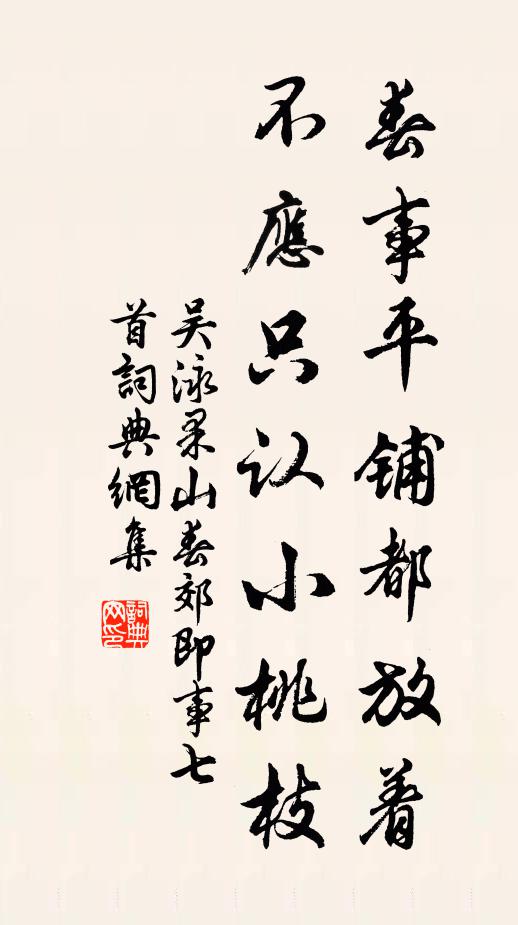 春事平鋪都放着
不應只认小桃枝
吳泳果山春郊即事七
首詞典網集
詞典網印